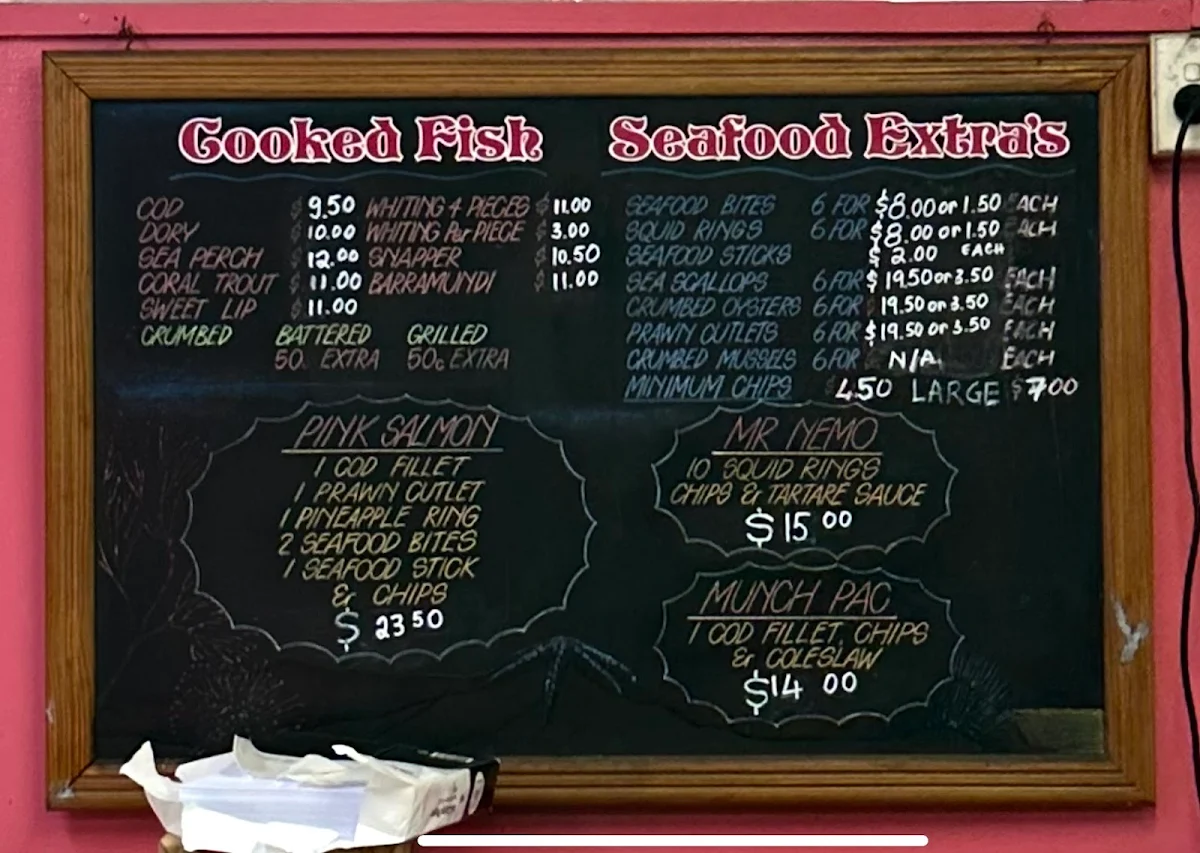 Cooked Fish
COD $ 9.50 WHITING 4 PIECES $ 11.00
DORY $ 10.00 WHITING Per PIECE $ 3.00
SEA PERCH $ 12.00 SNAPPER $ 10.50
CORAL TROUT $ 11.00 BARRAMUNDI $ 11.00
SWEET LIP $ 11.00
CRUMBED BATTERED GRILLED
50c EXTRA 50c EXTRA
Seafood Extra's
SEAFOOD BITES 6 FOR $8.00 or 1.50 EACH
SQUID RINGS 6 FOR $8.00 or 1.50 EACH
SEAFOOD STICKS $ 2.00 EACH
SEA SCALLOPS 6 FOR $ 19.50 or 3.50 EACH
CRUMBED OYSTERS 6 FOR 19.50 or 3.50 EACH
PRAWN CUTLETS 6 FOR $19.50 or 3.50 EACH
CRUMBED MUSSELS 6 FOR N/A EACH
MINIMUM CHIPS 4.50 LARGE $7.00
PINK SALMON
1 COD FILLET
1 PRAWN CUTLET
1 PINEAPPLE RING
2 SEAFOOD BITES
1 SEAFOOD STICK
& CHIPS
$ 23 50
MR NEMO
10 SQUID RINGS
CHIPS & TARTARE SAUCE
$ 15 00
MUNCH PAC
1 COD FILLET, CHIPS
& COLESLAW
$14 00